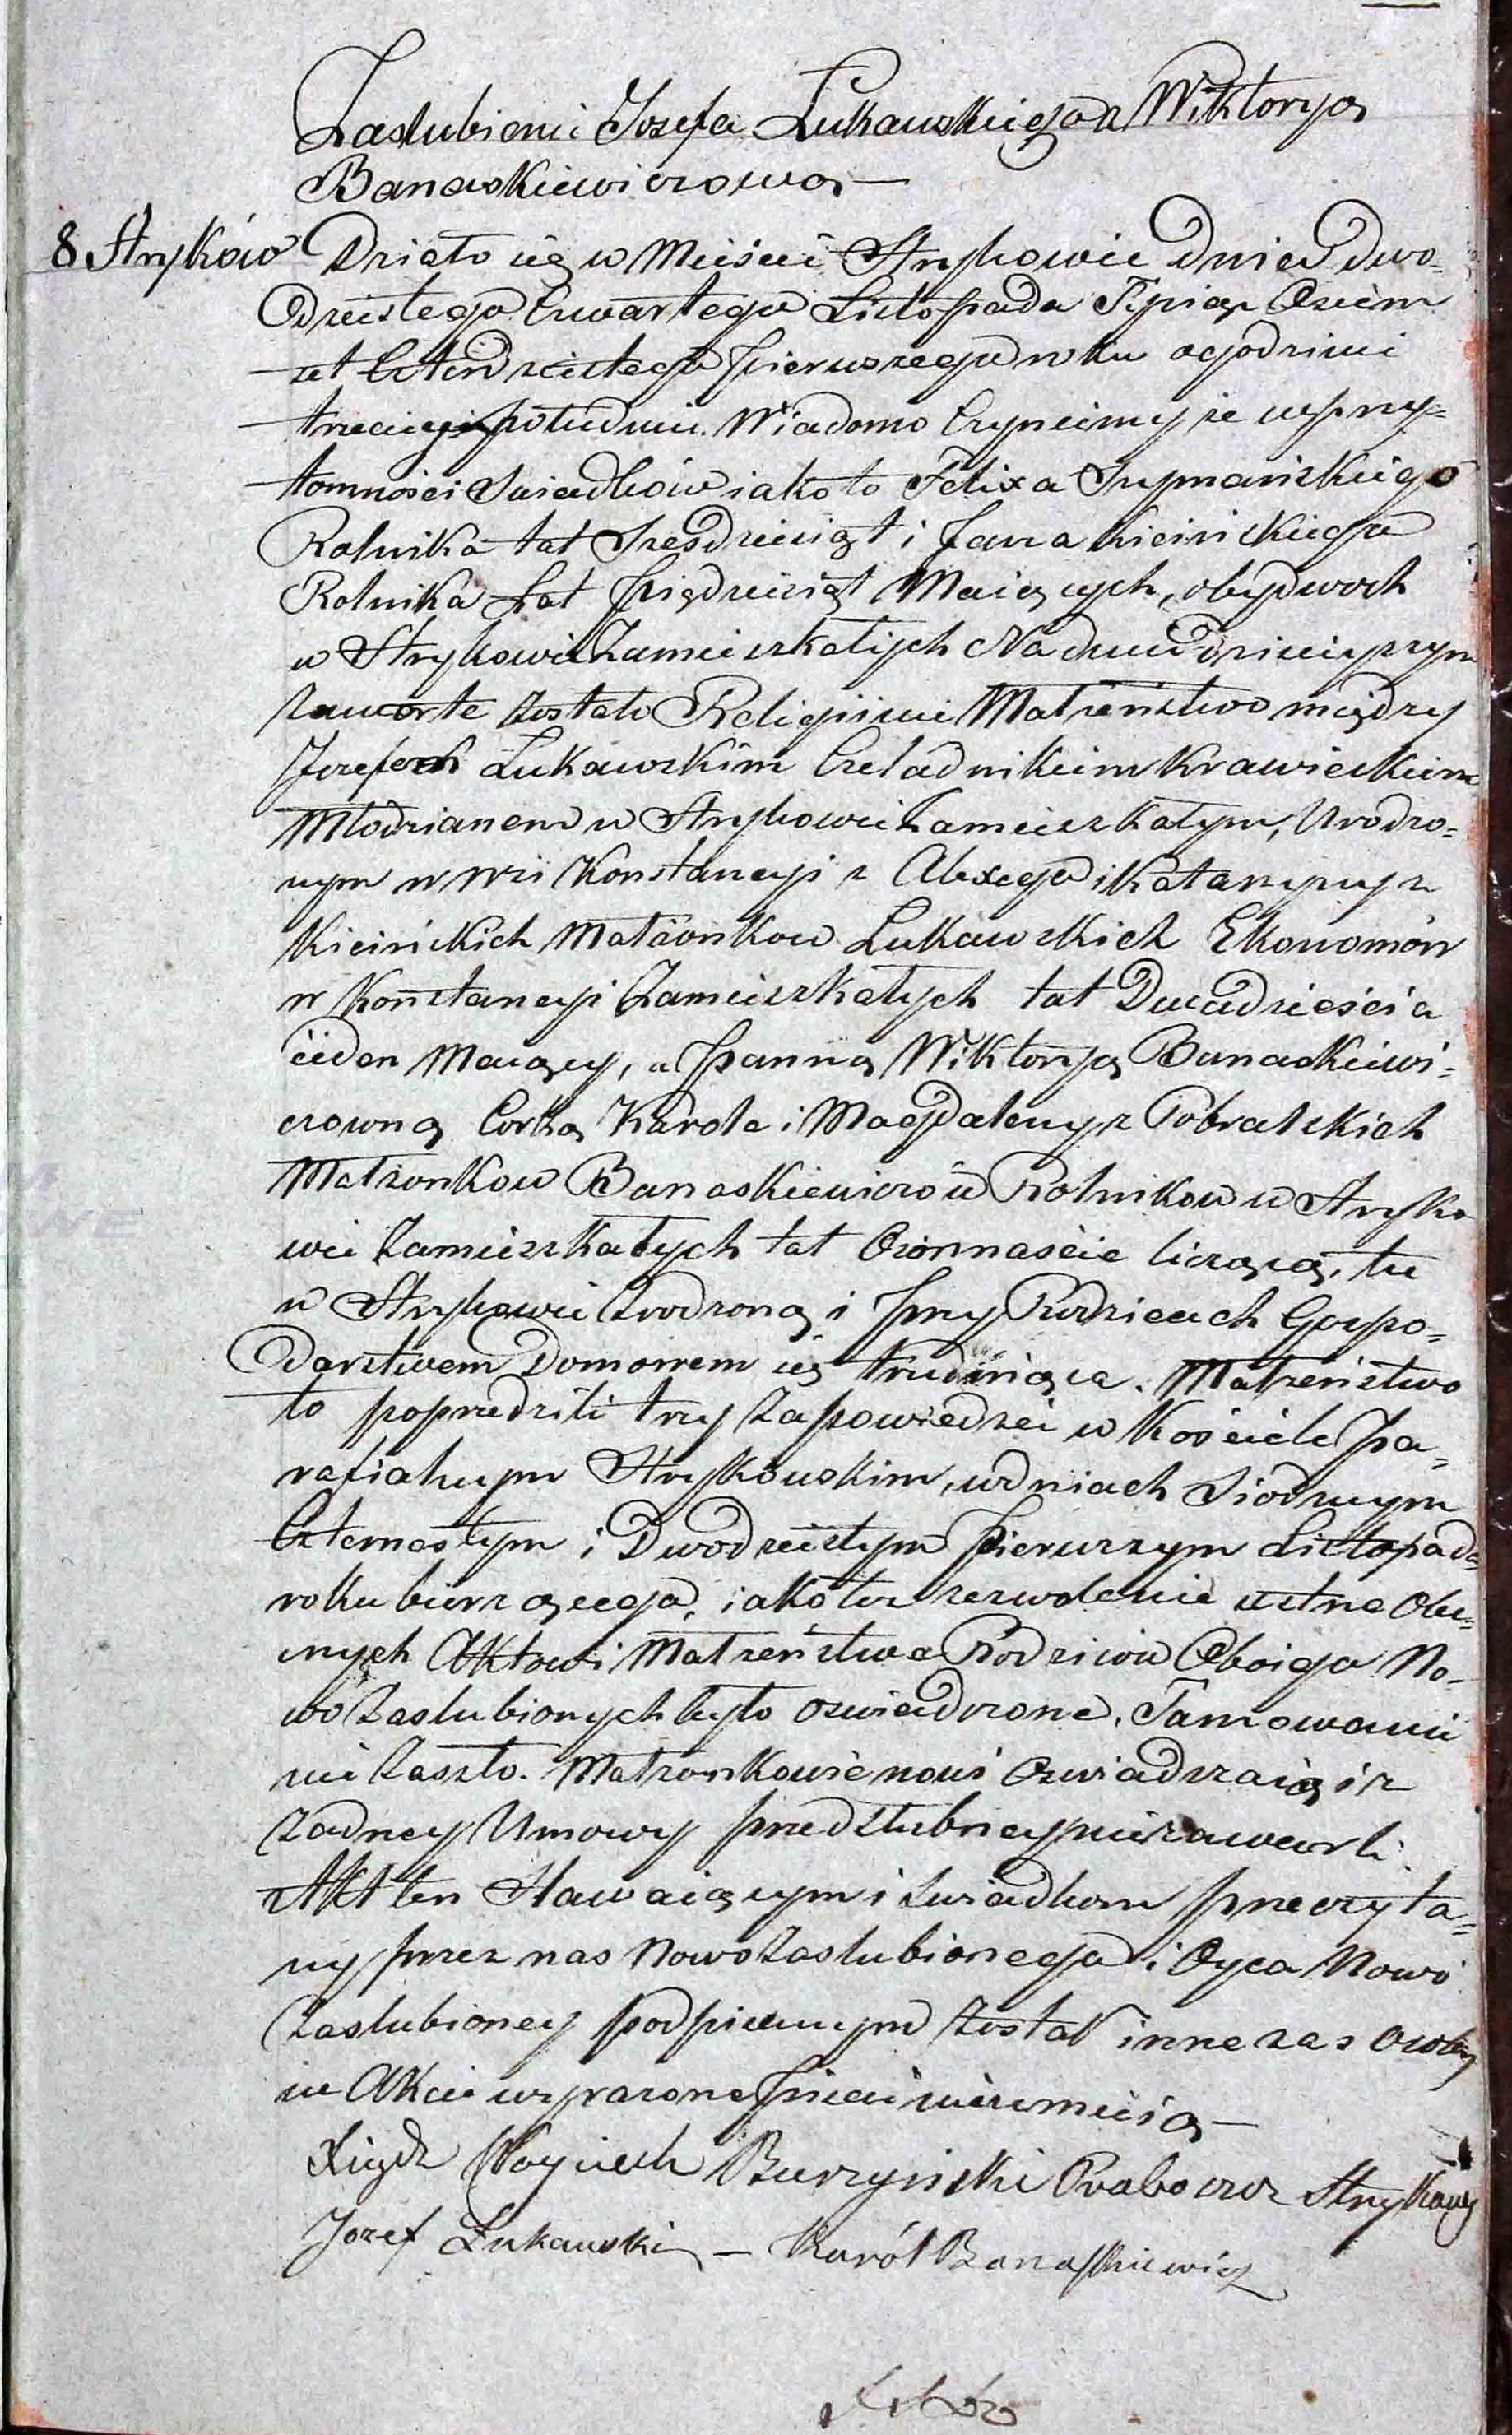 Zaslubienie Jozefa Łukawskiego z Wiktoryą
Banaskiewiczową —
8 Stryków Działo się w Mieście Strykowie dnia dwo-
dziestego Czwartego Listopada Tysiąc Ośm
set Czterdziestego pierwszego roku o godzinie
trzeciej popołudniu. Wiadomo Czyniemy że w przy-
tomności Swiadków iako to Felixa Szymańskiego
Rolnika lat Szesdziesiąt i Jana Kiciński̇ego
Rolnika Lat piędziesiąt Maiących, obydwoch
w Strykowie Zamieszkałych Na dniu dzisieyszym
zawarte zostało Religijne Małżeństwo między
Jozefem Łukawskim Czeladnikiem Krawieckiem
Młodzianem w Strykowie Zamieszkałym, Urodzo-
nym w Wsi Konstancyi z Alexego i Katarzyny z
Kicińskich Małżonkow Łukawskich Ekonomów
w Konstancyi Zamieszkałych lat Dwadzieścia
ieden Maiący, a Panną Wiktoryą Banaskiewi-
czowną Corką Karola i Magdaleny z Pobratskich
Małżonkow Banaskiewiczów Rolnikow w Stryko
wie Zamieszkałych lat Osiemnaście liczącą, tu
w Strykowie Zrodzoną i przy Rodzicach Gospo-
darstwem Domowem się trudniąca. Małżeństwo
to poprzedziłi trzy Zapowiedzi w Kościele Pa-
rafialnym Strykowskim, w dniach Siodmym
Czternastym i Dwodziestym pierwszym Listopada
roku bierzącego, iako też zezwolenie ustne Obe-
cnych Aktowi Małżeństwa Rodziców Oboiga No-
wo Zaslubionych było oswiadczone. Tamowanie
nie Zaszło. Małżonkowie nowi Oswiadczaią iz
Zadney Umowy przedslubney nie zawarli.
Akt ten Stawaiącym i Swiadkom przeczyta-
ny przez nas Nowo Zaslubionego i Oyca Nowo
Zaslubioney podpisanym został inne zas osoby
w Akcie wyrazone pisać nieumieią —
Xiądz Woyciech Burzyński Proboszcz Strykows
Jozef Łukawski — Karól Banaskiewicz